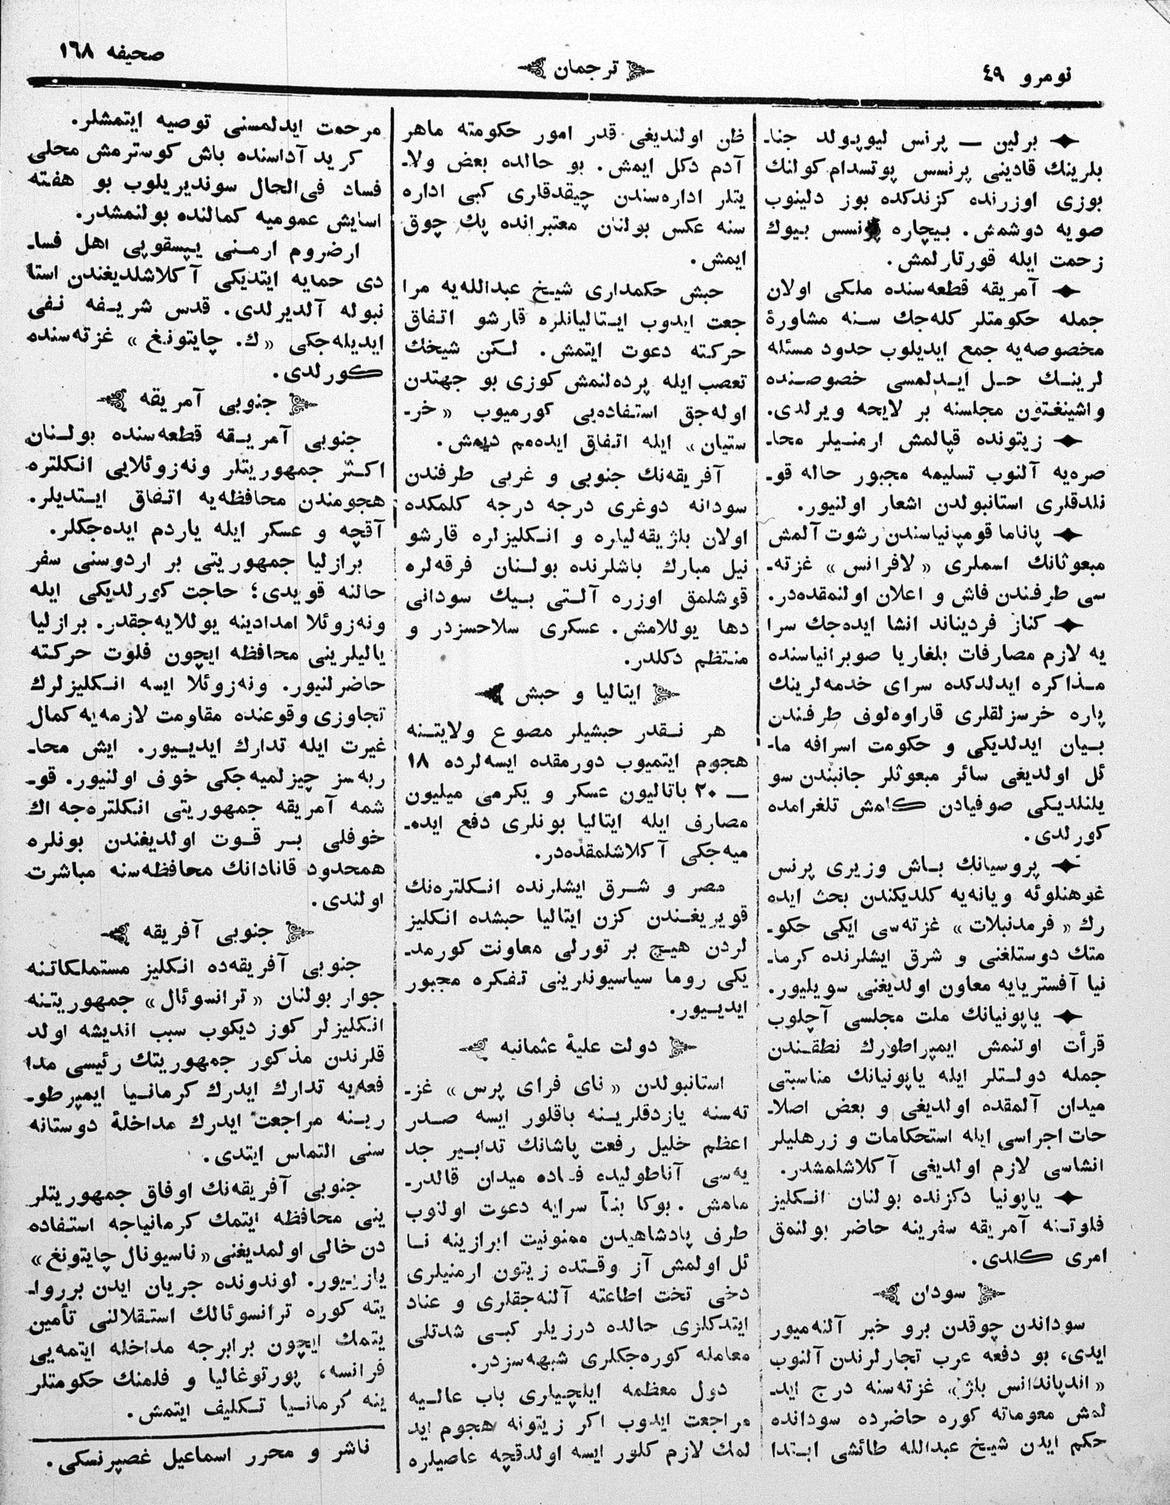 نومرو ٤٩
ترجمان
صحیفه ١٦٨
برلین — پرنس لیوپولد جنا-
بلرینك قادینی پرنسس پوتسدام كولنك
بوزی اوزرنده كزندكده بوز دلینوب
صویه دوشمش. بیچاره پرنسس بیوك
زحمت ایله قورتارلمش.
آمریقه قطعه‌سنده ملكی اولان
جمله حكومتلر كله‌جك سنه مشاورۀ
مخصوصه‌یه جمع ایدیلوب حدود مسئله
لرینك حل ایدلمسی خصوصنده
واشینغتون مجلسنه بر لایحه ویرلدی.
زیتونده قپالمش ارمنیلر محا-
صره‌یه آلنوب تسلیمه مجبور حاله قو-
نلدقلری استانبولدن اشعار اولنیور.
پاناما قومپانیاسندن رشوت آلمش
مبعوثانك اسملری «لافرانس» غزته-
سی طرفندن فاش و اعلان اولنمقده‌در.
كناز فردیناند انشا ایده‌جك سرا
یه لازم مصارفات بلغاریا صوبرانیاسنده
مذاكره ایدلدكده سرای خدمه‌لرینك
پاره خرسزلقلری قاراوه‌لوف طرفندن
بیان ایدلدیكی و حكومت اسرافه ما-
ئل اولدیغی سائر مبعوثلر جانبندن سو
یلنلدیكی صوفیادن كلمش تلغرامده
كورلدی.
پروسیانك باش وزیری پرنس
غوهنلوئه ویانه‌یه كلدیكندن بحث ایده
رك «فرمدنبلات» غزته‌سی ایكی حكو-
متك دوستلغنی و شرق ایشلرنده كرما-
نیا آفستریایه معاون اولدیغنی سویلیور.
یاپونیانك ملت مجلسی آچلوب
قرأت اولنمش ایمپراطورك نطقندن
جمله دولتلر ایله یاپونیانك مناسبتی
میدان آلمقده اولدیغی و بعض اصلا-
حات اجراسی ایله استحكامات و زرهلیلر
انشاسی لازم اولدیغی آكلاشلمشدر.
یاپونیا دكزنده بولنان انكلیز
فلوتنه آمریقه سفرینه حاضر بولنمق
امری كلدی.
سودان
سوداندن چوقدن برو خبر آلنه‌میور
ایدی، بو دفعه عرب تجارلرندن آلنوب
«اندپاندانس بلژ» غزته‌سنه درج اید-
لمش معوماته كوره حاضرده سودانده
حكم ایدن شیخ عبدالله طائشی ابتدا
ظن اولندیغی قدر امور حكومته ماهر
آدم دكل ایمش. بو حالده بعض ولا-
یتلر اداره‌سندن چیقدقلری كبی اداره
سنه عكس بولنان معتبرانده پك چوق
ایمش.
حبش حكمداری شیخ عبدالله‌یه مرا
جعت ایدوب ایتالیانلره قارشو اتفاق
حركته دعوت ایتمش. لكن شیخك
تعصب ایله پرده‌لنمش كوزی بو جهتدن
اوله‌جق استفاده‌یی كورمیوب «خر-
ستیان» ایله اتفاق ایده‌مم دیمش.
آفریقه‌نك جنوبی و غربی طرفندن
سودانه دوغری درجه درجه كلمكده
اولان بلژیقه‌لیلره و انكلیزلره قارشو
نیل مبارك باشلرنده بولنان فرقه‌لره
قوشلمق اوزره آلتی بیك سودانی
دها یوللامش. عسكری سلاحسزدر و
منتظم دكلدر.
ایتالیا و حبش
هر نقدر حبشیلر مصوع ولایتنه
هجوم ایتمیوب دورمقده ایسه‌لرده ١٨
— ٢٠ باتالیون عسكر و یكرمی میلیون
مصارف ایله ایتالیا بونلری دفع ایده-
میه‌جكی آكلاشلمقده‌در.
مصر و شرق ایشلرنده انكلتره‌نك
قویریغندن كزن ایتالیا حبشده انكلیز
لردن هیچ بر تورلی معاونت كورمد-
یكی روما سیاسیونلرینی تفكره مجبور
ایدییور.
دولت علیۀ عثمانیه
استانبولدن «نای فرای پرس» غز-
ته‌سنه یازدقلرینه باقلور ایسه صدر
اعظم خلیل رفعت پاشانك تدابیر جد
یه‌سی آناطولیده فساده میدان قالدر-
مامش. بوكا بنآ سرایه دعوت اولنوب
طرف پادشاهیدن ممنونیت ابرازینه نا
ئل اولمش آز وقتده زیتون ارمنیلری
دخی تخت اطاعته آلنه‌جقلری و عناد
ایتدكلری حالده درزیلر كبی شدتلی
معامله كوره‌جكلری شبهه‌سزدر.
دول معظمه ایلچیلری باب عالیه
مراجعت ایدوب اكر زیتونه هجوم اید
لمك لازم كلور ایسه اولدقچه عاصیلره
مرحمت ایدلمسنی توصیه ایتمشلر.
كرید آداسنده باش كوسترمش محلی
فساد فی‌الحال سوندیریلوب بو هفته
اسایش عمومیه كمالنده بولنمشدر.
ارضروم ارمنی یپسقوپی اهل فسا-
دی حمایه ایتدیكی آكلاشلدیغندن استا
نبوله آلدیرلدی. قدس شریفه نفی
ایدیله‌جكی «ك. چایتونغ» غزته‌سنده
كورلدی.
جنوبی آمریقه
جنوبی آمریقه قطعه‌سنده بولنان
اكثر جمهوریتلر ونه‌زوئلایی انكلتره
هجومندن محافظه‌یه اتفاق ایتدیلر.
آقچه و عسكر ایله یاردم ایده‌جكلر.
برازلیا جمهوریتی بر اردوسنی سفر
حالنه قویدی؛ حاجت كورلدیكی ایله
ونه‌زوئلا امدادینه یوللایه‌جقدر. برازلیا
یالیلرینی محافظه ایچون فلوت حركته
حاضرلنیور. ونه‌زوئلا ایسه انكلیزلرك
تجاوزی وقوعنده مقاومت لازمه‌یه كمال
غیرت ایله تدارك ایدییور. ایش محا-
ربه‌سز چیزلمیه‌جكی خوف اولنیور. قو-
شمه آمریقه جمهوریتی انكلتره‌جه اك
خوفلی بر قوت اولدیغندن بونلره
همحدود قانادانك محافظه‌سنه مباشرت
اولندی.
جنوبی آفریقه
جنوبی آفریقه‌ده انكلیز مستملكاتنه
جوار بولنان «ترانسوئال» جمهوریتنه
انكلیزلر كوز دیكوب سبب اندیشه اولد
قلرندن مذكور جمهوریتك رئیسی مدا
فعه‌یه تدارك ایدرك كرمانیا ایمپرطو-
رینه مراجعت ایدرك مداخلۀ دوستانه
سنی التماس ایتدی.
جنوبی آفریقه‌نك اوفاق جمهوریتلر
ینی محافظه ایتمك كرمانیاجه استفاده
دن خالی اولمدیغنی «ناسیونال چایتونغ»
یازییور. لوندونده جریان ایدن برروا-
یته كوره ترانسوئالك استقلالنی تأمین
یتمك ایچون برابرجه مداخله ایتمه‌یی
فرانسه، پورتوغالیا و فلمنك حكومتلر
ینه كرمانیا تكلیف ایتمش.
ناشر و محرر اسماعیل غصپرنسكی.